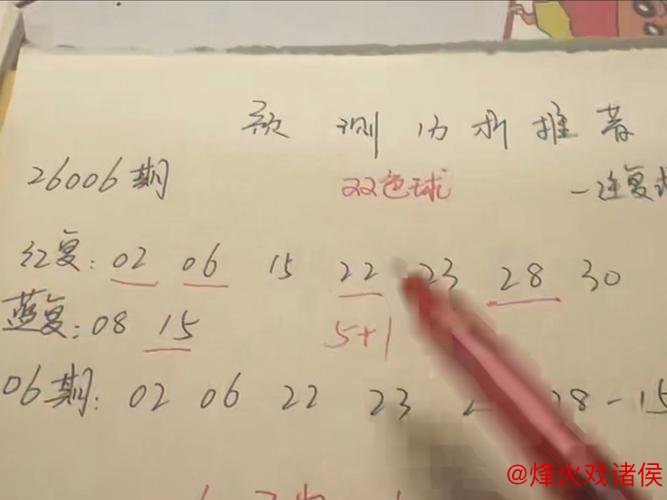 预测分析推荐
26006期 双色球 一注复
红复: 02 06 15 22 23 28 30
蓝复: 08 15
5+1
06期: 02 06 22 23 28-15
@烽火戏诸侯